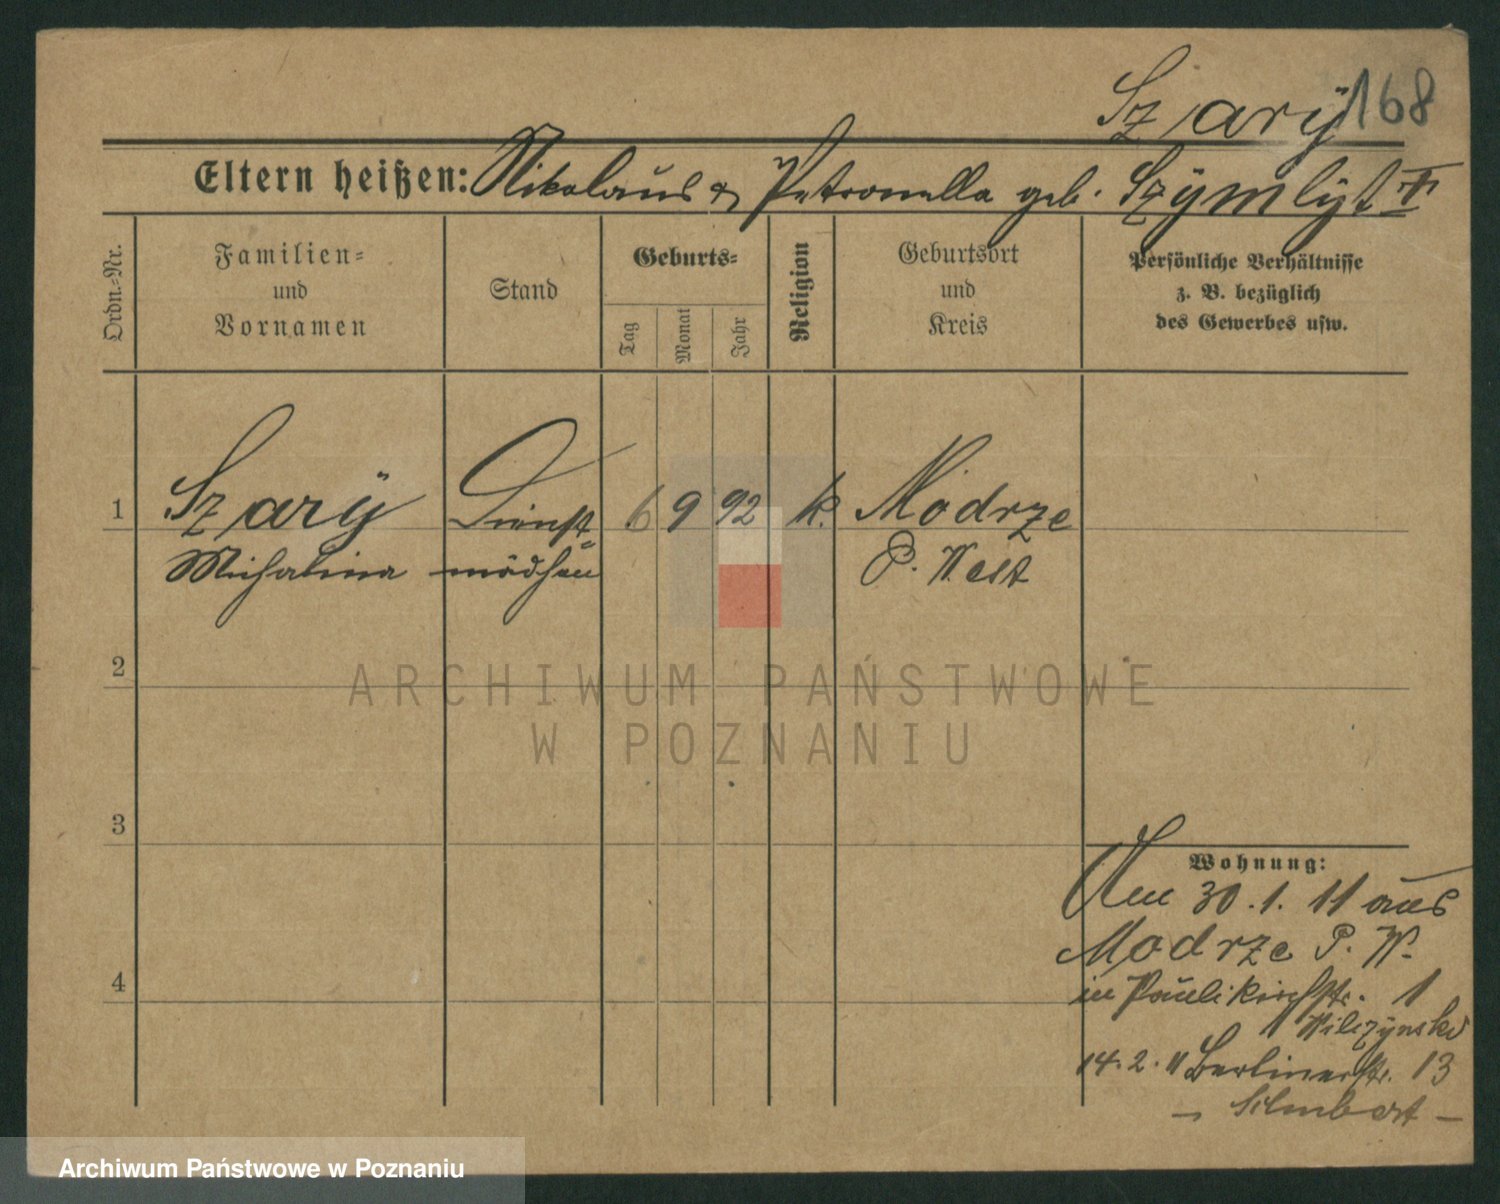 Szarÿ 168
Eltern heißen: Nikolaus & Petronella geb.
Ordn.-Nr.
Familien-
und
Vornamen
Stand
Geburts-
Tag
Monat
Jahr
Religion
Geburtsort
und
Kreis
Persönliche Verhältnisse
z. B. bezüglich
des Gewerbes usw.
1 Szarÿ Dienst 6 9 92 k. Modrze
Michalina mädchen P. West
2
ARCHIWUM PAŃSTWOWE
W POZNANIU
3
Wohnung:
Am 30.1.11 aus
Modrze P. W.
in Paulikirchstr. 1
Wilczynski
4
14.2.11 Berlinerstr. 13
Archiwum Państwowe w Poznaniu